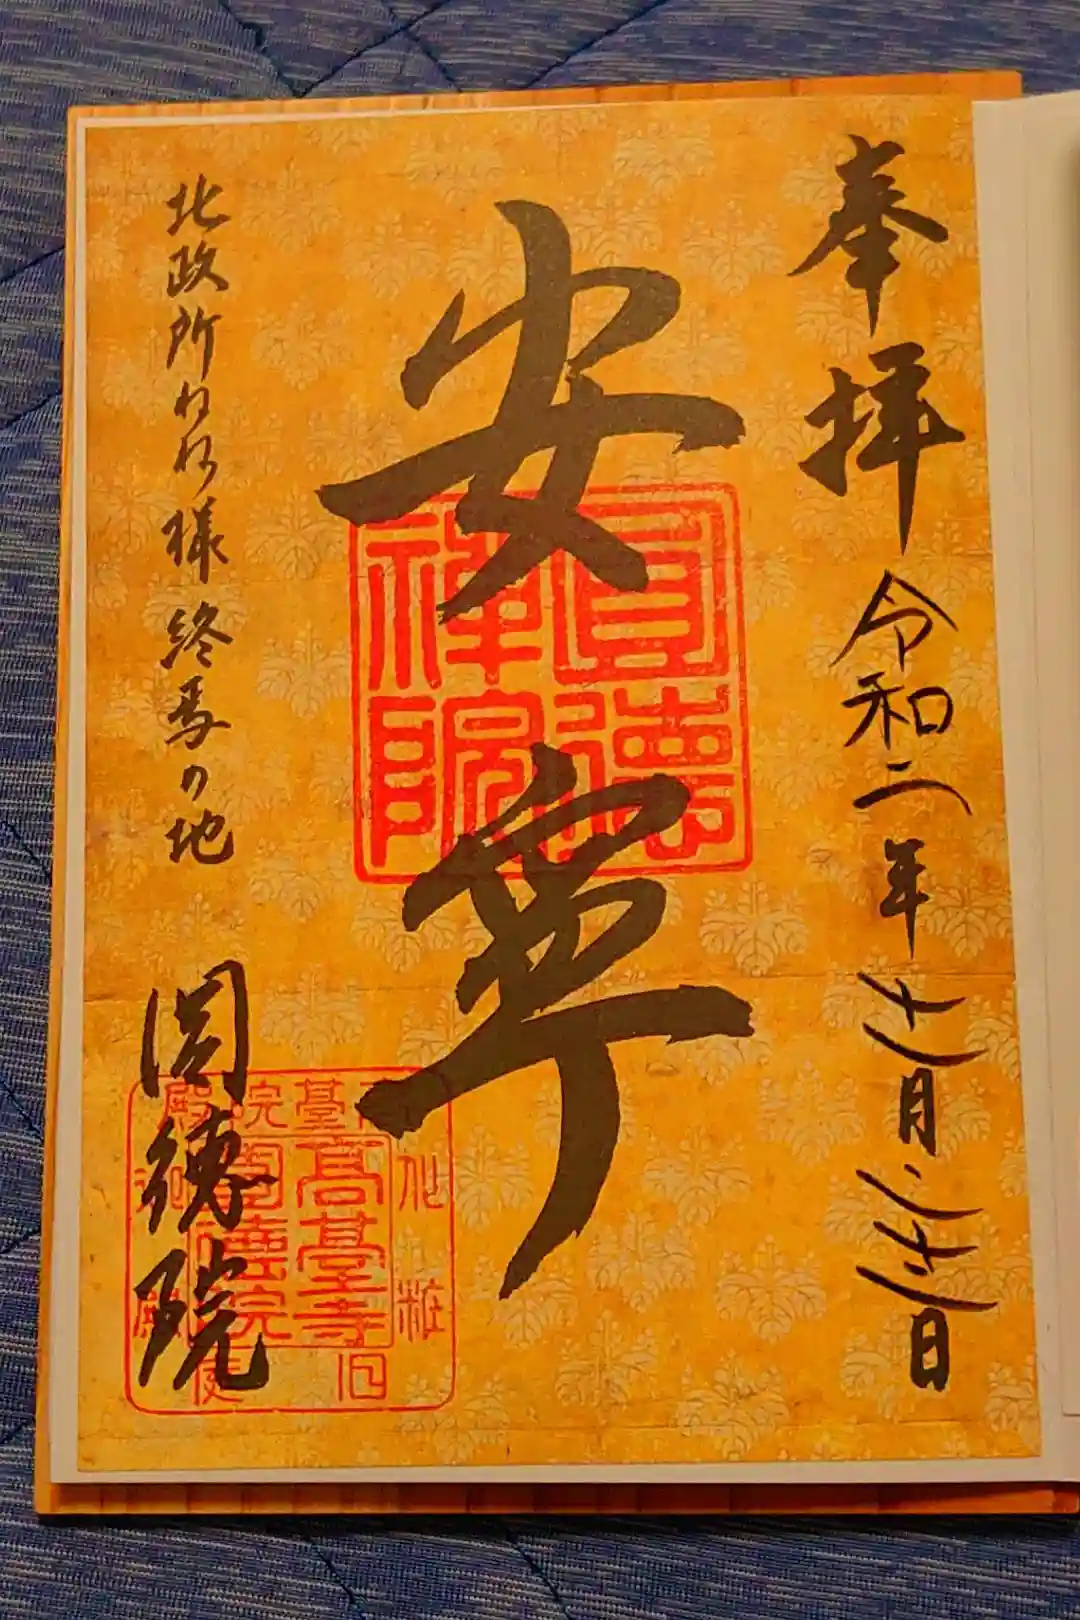 奉拝 令和二年十一月二十二日
安寧
圓德
禪院
北政所ねね様終焉の地
圓徳院
高臺寺
圓德院
化粧